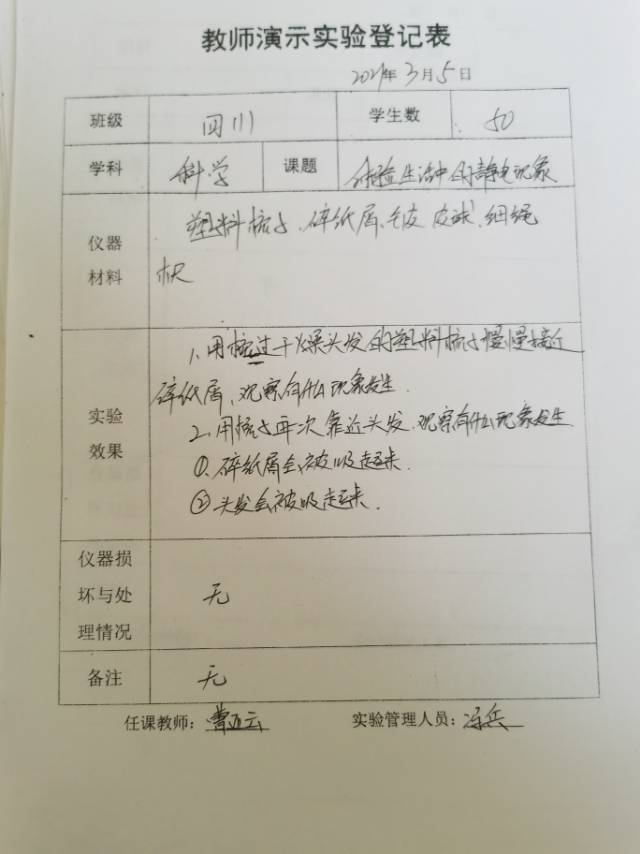 教师演示实验登记表
2021年3月5日
班级 四(1) 学生数 50
学科 科学 课题 体验生活中的静电现象
仪器材料 塑料梳子、碎纸屑、毛皮、皮球、细绳
实验效果 1、用梳过干燥头发的塑料梳子慢慢接近
碎纸屑、观察有什么现象发生.
2、用梳子再次靠近头发、观察有什么现象发生
①、碎纸屑会被吸起来.
②头发会被吸起来.
仪器损坏与处理情况 无
备注 无
任课教师：曹亚云 实验管理人员：冯兵